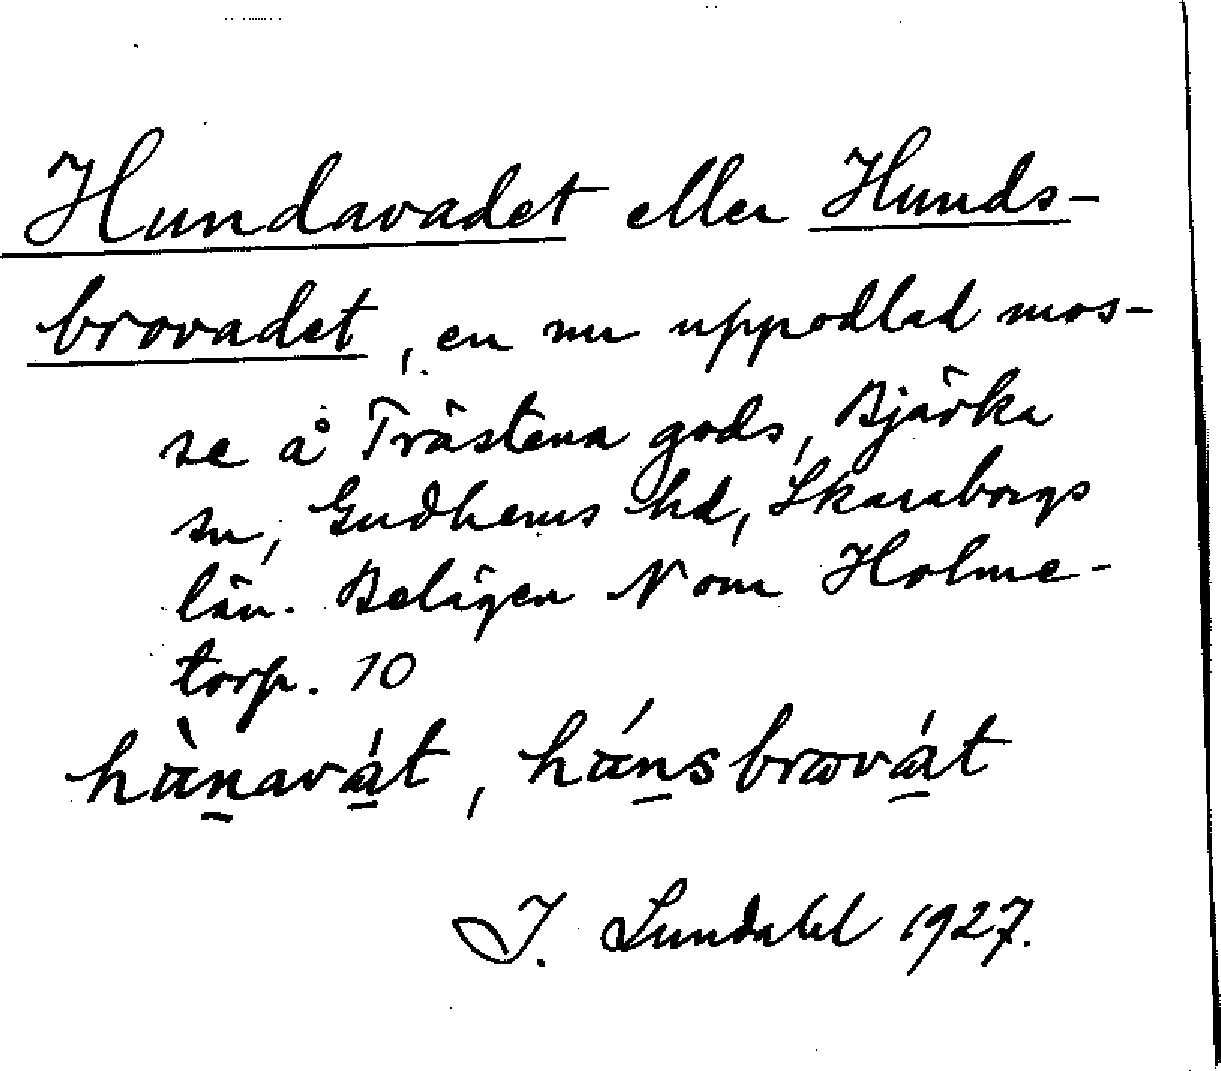 Hundavadet eller Hunds-
brovadet, en nu uppodlad mos-
se å Trästena gods, Bjärka
sn, Gudhems hd, Skaraborgs
län. Belägen N om Holme-
torp. 10
hànavát, hánsbrovát
I. Lundahl 1927.